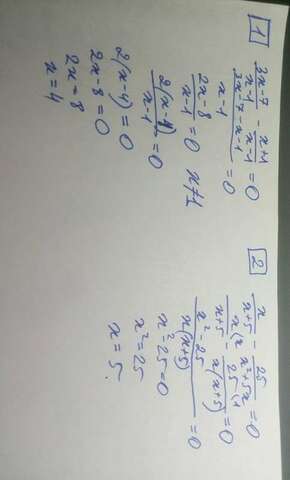 1
(3x-7)/(x-1) - (x+1)/(x-1) = 0
(3x-7-x-1)/(x-1) = 0
(2x-8)/(x-1) = 0 x≠1
2(x-4)/(x-1) = 0
2(x-4)=0
2x-8=0
2x=8
x=4
2
x/(x+5) - 25/(x²+5x) = 0
x(x/(x+5) - 25(1/(x(x+5)) = 0
(x²-25)/(x(x+5)) = 0
x²-25=0
x²=25
x=5.